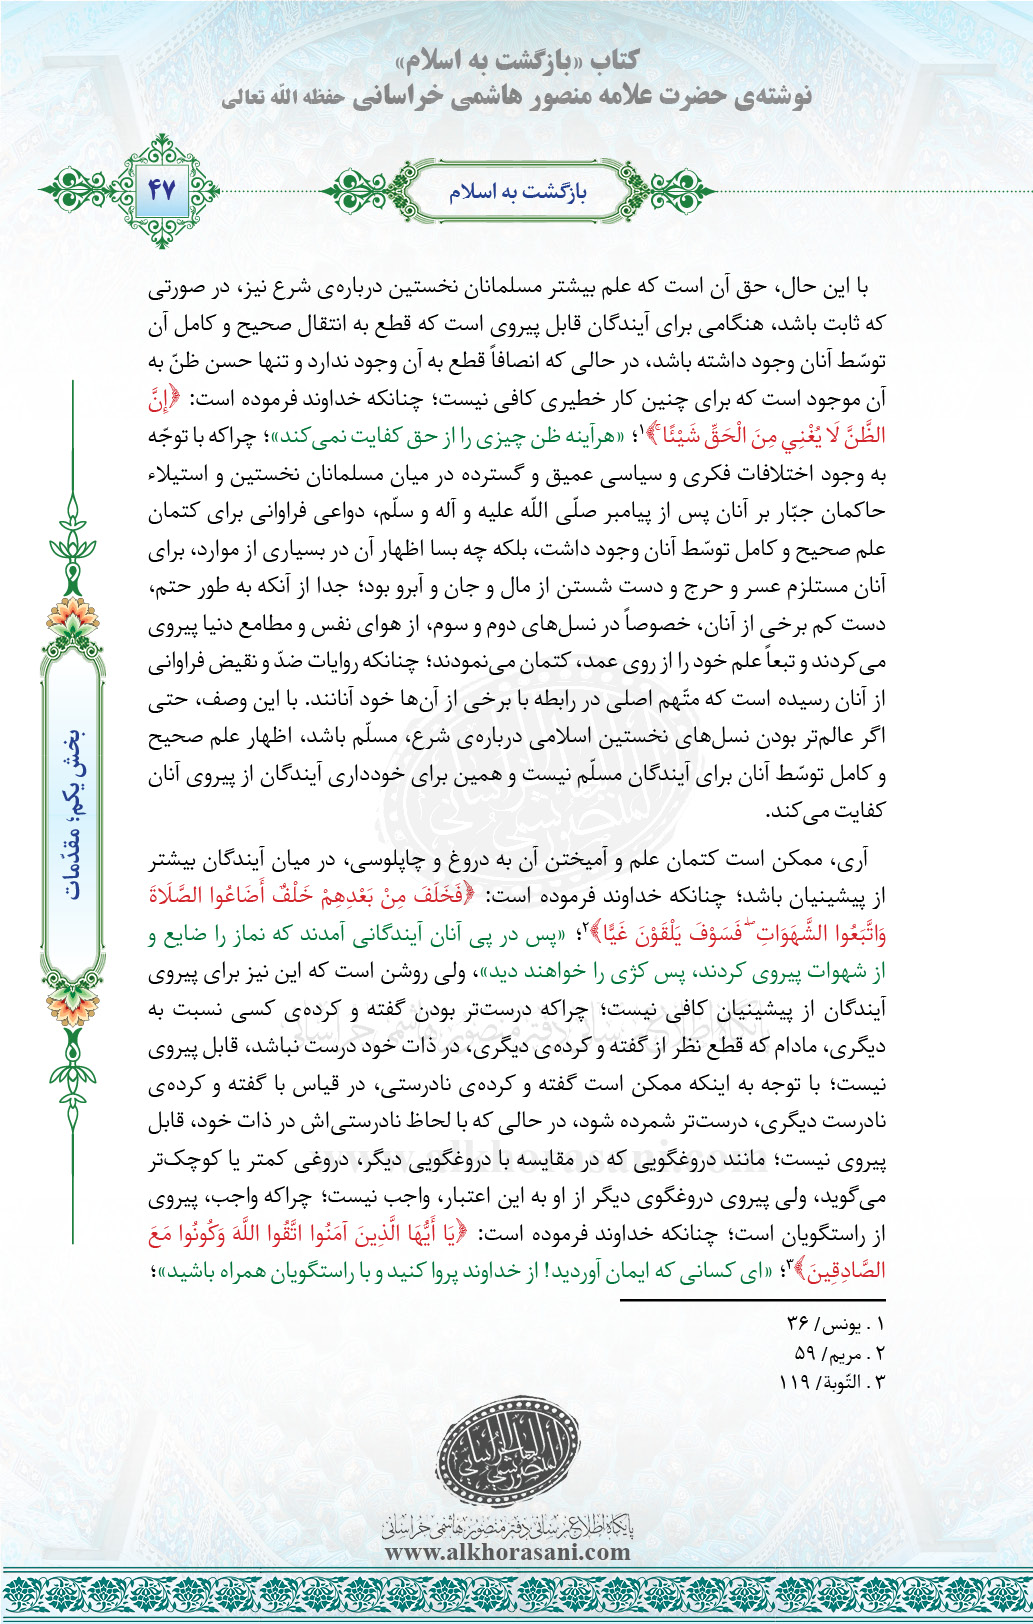 کتاب «بازگشت به اسلام»
نوشته‌ی حضرت علامه منصور هاشمی خراسانی حفظه الله تعالی
۴۷
بازگشت به اسلام
با این حال، حق آن است که علم بیشتر مسلمانان نخستین درباره‌ی شرع نیز، در صورتی
که ثابت باشد، هنگامی برای آیندگان قابل پیروی است که قطع به انتقال صحیح و کامل آن
توسّط آنان وجود داشته باشد، در حالی که انصافاً قطع به آن وجود ندارد و تنها حسن ظنّ به
آن موجود است که برای چنین کار خطیری کافی نیست؛ چنانکه خداوند فرموده است: ﴿إِنَّ
الظَّنَّ لَا يُغْنِي مِنَ الْحَقِّ شَيْئًا ۚ﴾۱؛ «هرآینه ظن چیزی را از حق کفایت نمی‌کند»؛ چراکه با توجّه
به وجود اختلافات فکری و سیاسی عمیق و گسترده در میان مسلمانان نخستین و استیلاء
حاکمان جبّار بر آنان پس از پیامبر صلّی اللّه علیه و آله و سلّم، دواعی فراوانی برای کتمان
علم صحیح و کامل توسّط آنان وجود داشت، بلکه چه بسا اظهار آن در بسیاری از موارد، برای
آنان مستلزم عسر و حرج و دست شستن از مال و جان و آبرو بود؛ جدا از آنکه به طور حتم،
دست کم برخی از آنان، خصوصاً در نسل‌های دوم و سوم، از هوای نفس و مطامع دنیا پیروی
می‌کردند و تبعاً علم خود را از روی عمد، کتمان می‌نمودند؛ چنانکه روایات ضدّ و نقیض فراوانی
از آنان رسیده است که متّهم اصلی در رابطه با برخی از آن‌ها خود آنانند. با این وصف، حتی
اگر عالم‌تر بودن نسل‌های نخستین اسلامی درباره‌ی شرع، مسلّم باشد، اظهار علم صحیح
و کامل توسّط آنان برای آیندگان مسلّم نیست و همین برای خودداری آیندگان از پیروی آنان
کفایت می‌کند.
آری، ممکن است کتمان علم و آمیختن آن به دروغ و چاپلوسی، در میان آیندگان بیشتر
از پیشینیان باشد؛ چنانکه خداوند فرموده است: ﴿فَخَلَفَ مِنْ بَعْدِهِمْ خَلْفٌ أَضَاعُوا الصَّلَاةَ
وَاتَّبَعُوا الشَّهَوَاتِ ۖ فَسَوْفَ يَلْقَوْنَ غَيًّا﴾۲؛ «پس در پی آنان آیندگانی آمدند که نماز را ضایع و
از شهوات پیروی کردند، پس کژی را خواهند دید»، ولی روشن است که این نیز برای پیروی
آیندگان از پیشینیان کافی نیست؛ چراکه درست‌تر بودن گفته و کرده‌ی کسی نسبت به
دیگری، مادام که قطع نظر از گفته و کرده‌ی دیگری، در ذات خود درست نباشد، قابل پیروی
نیست؛ با توجه به اینکه ممکن است گفته و کرده‌ی نادرستی، در قیاس با گفته و کرده‌ی
نادرست دیگری، درست‌تر شمرده شود، در حالی که با لحاظ نادرستی‌اش در ذات خود، قابل
پیروی نیست؛ مانند دروغگویی که در مقایسه با دروغگویی دیگر، دروغی کمتر یا کوچک‌تر
می‌گوید، ولی پیروی دروغگوی دیگر از او به این اعتبار، واجب نیست؛ چراکه واجب، پیروی
از راستگویان است؛ چنانکه خداوند فرموده است: ﴿يَا أَيُّهَا الَّذِينَ آمَنُوا اتَّقُوا اللَّهَ وَكُونُوا مَعَ
الصَّادِقِينَ﴾۳؛ «ای کسانی که ایمان آوردید! از خداوند پروا کنید و با راستگویان همراه باشید»؛
۱ . یونس/ ۳۶
۲ . مریم/ ۵۹
۳ . التّوبة/ ۱۱۹
بخش یکم؛ مقدّمات
المنصور الهاشمی الخراسانی
پایگاه اطلاع‌رسانی دفتر منصور هاشمی خراسانی
www.alkhorasani.com